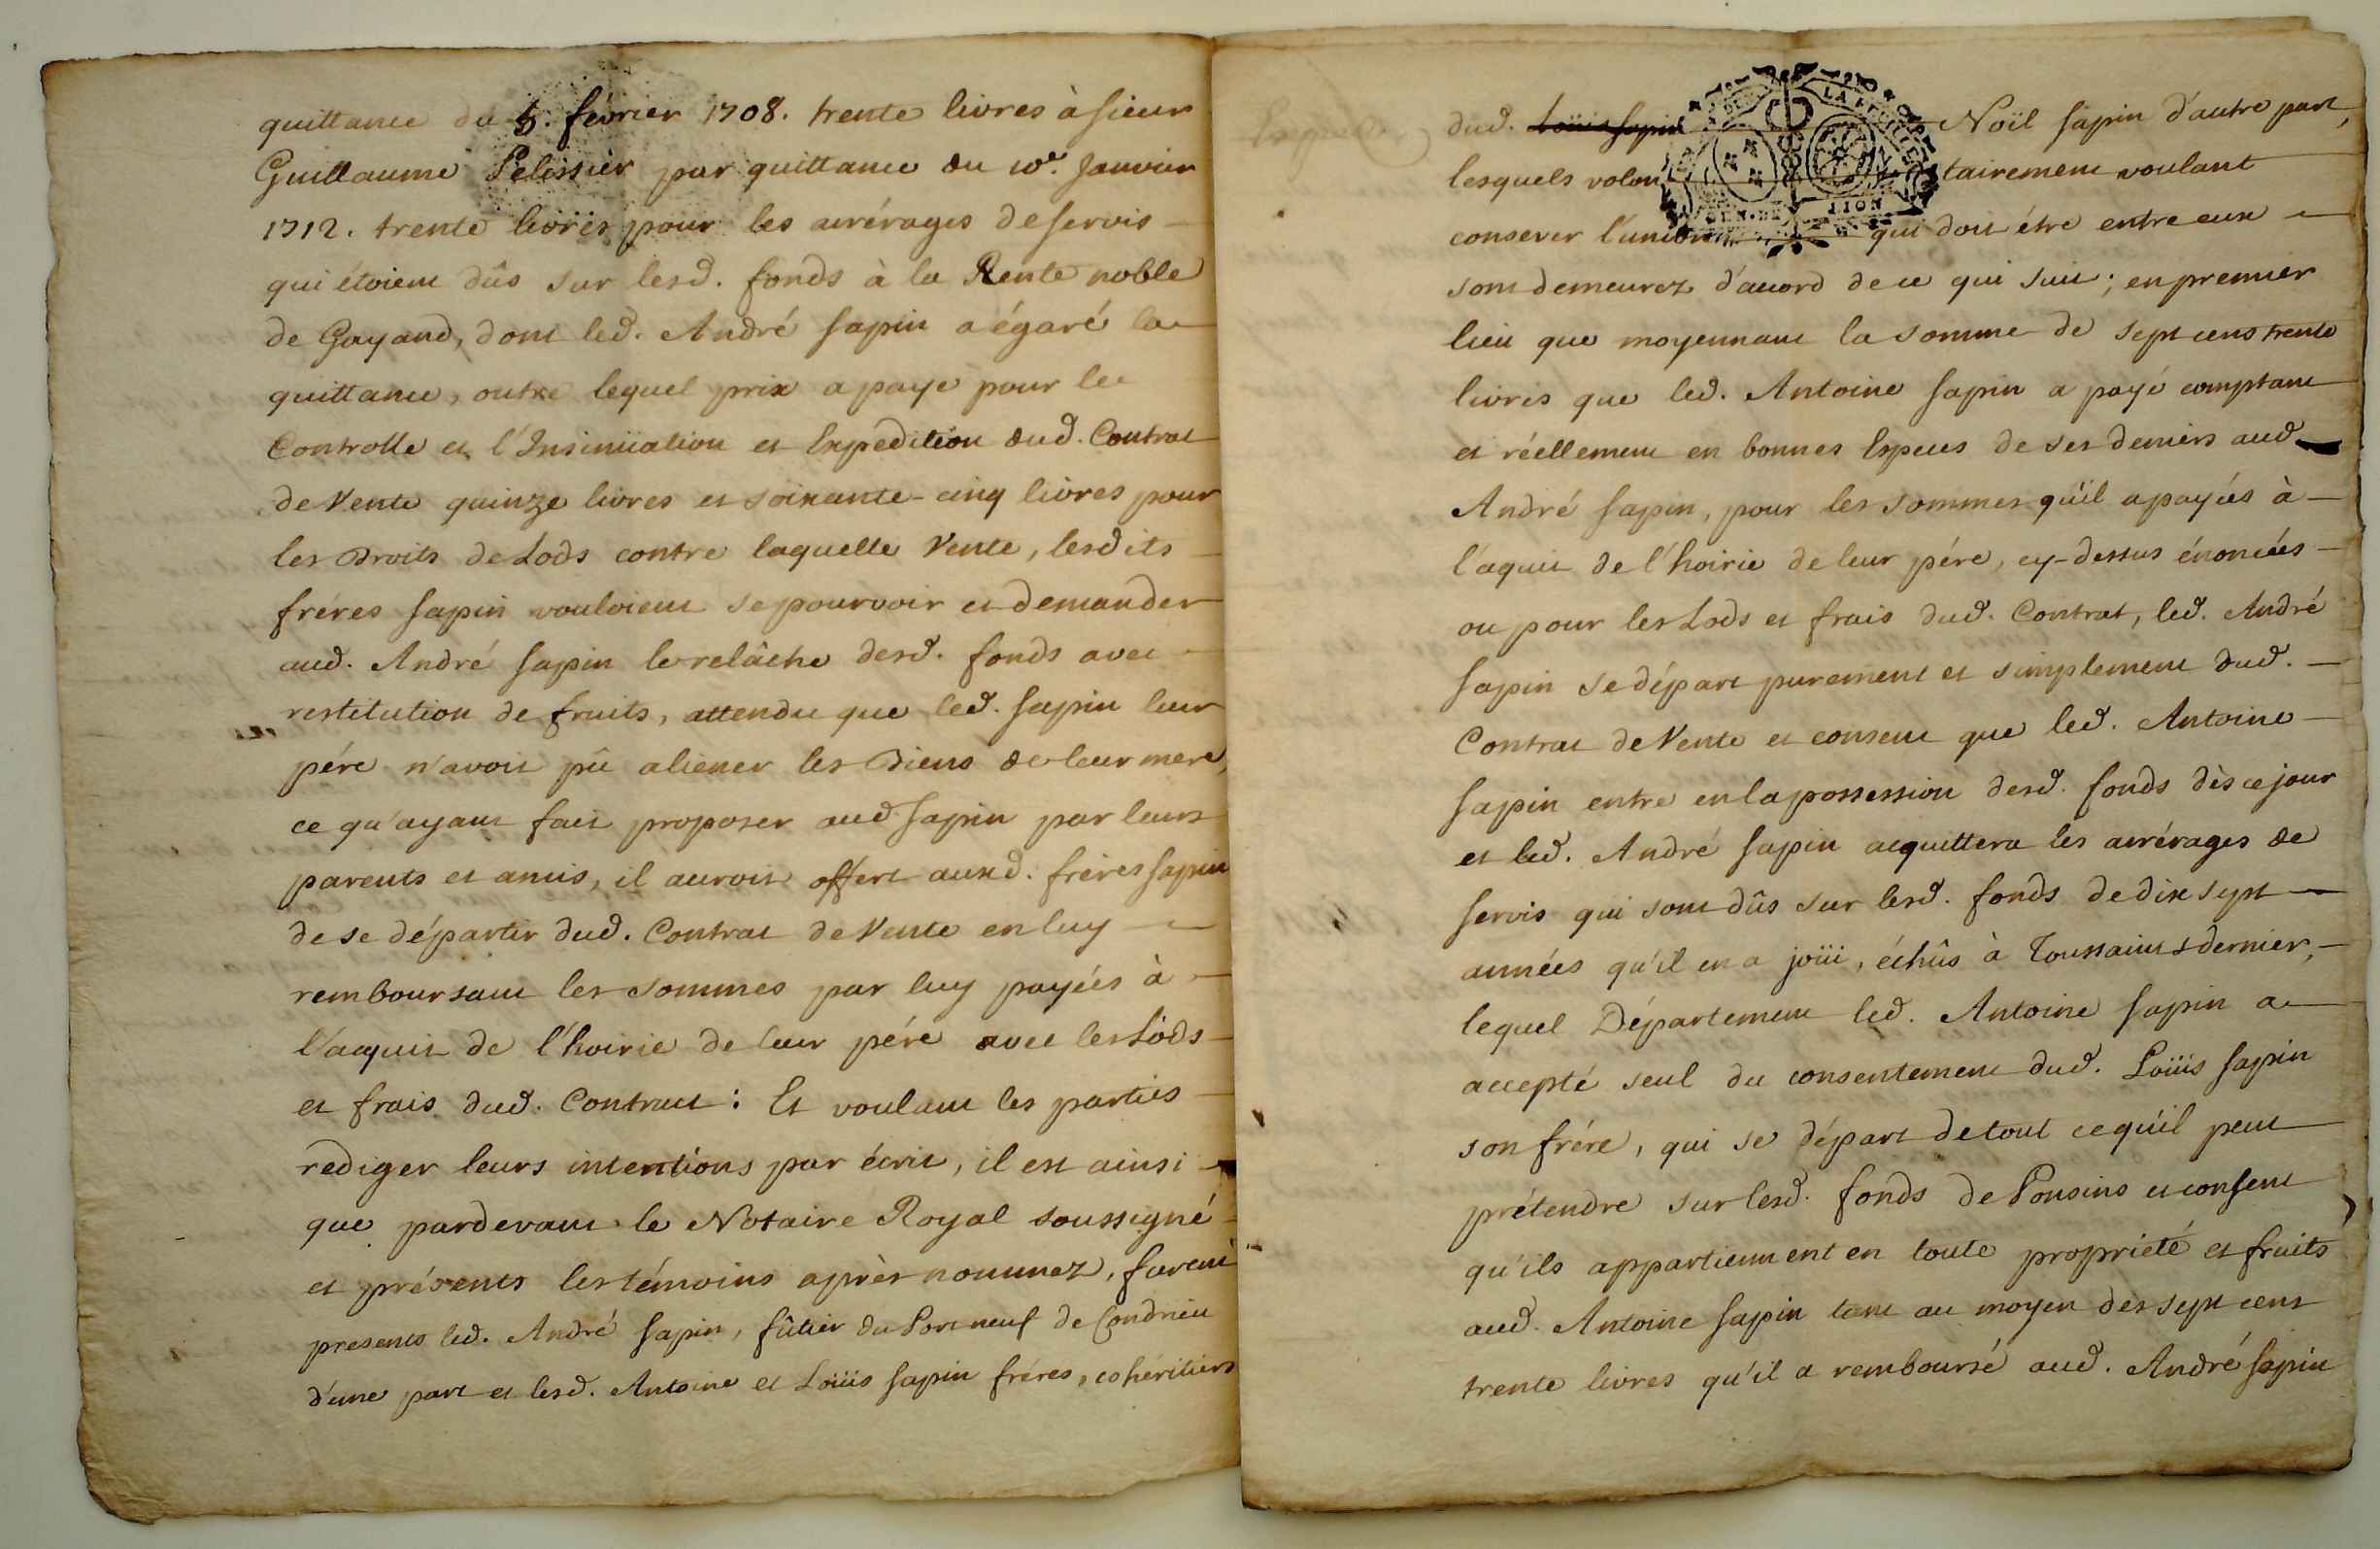 quittance du 5. février 1708. trente livres à sieur
Guillaume Pelissier par quittance du 10e. Janvier
1712. trente livres pour les arrérages de servis
qui étoient dûs sur lesd. fonds à la Rente noble
de Gayand, dont led. André Sapin a égaré la
quittance, outre lequel prix a payé pour le
Controlle et l'Insinüation et Expedition dud. Contrat
de Vente quinze livres et soixante-cinq livres pour
les Droits de Lods contre laquelle Vente, lesdits
fréres Sapin vouloient se pourvoir et demander
aud. André Sapin le relâche desd. fonds avec
restitution de fruits, attendu que led. Sapin leur
pére n'avoit pû aliener les Biens de leur mere,
ce qu'ayant fait proposer aud Sapin par leurs
parents et amis, il auroit offert auxd. fréres Sapin
de se départir dud. Contrat de Vente en luy
remboursant les sommes par luy payées à
l'acquit de l'hoirie de leur pére avec les Lods
et frais dud. Contract : Et voulant les parties
rediger leurs intentions par écrit, il est ainsi
que pardevant le Notaire Royal soussigné
et présents les témoins après nommez, furent
presents led. André Sapin, fûtier du Port neuf de Condrieu
d'une part et lesd. Antoine et Loüis Sapin fréres, cohéritiers
dud. Loüis Sapin Noël Sapin d'autre part,
lesquels volontairement voulant
conserver l'union qui doit étre entre eux
sont demeurez d'acord de ce qui suit ; en premier
lieu que moyennant la somme de sept cens trente
livres que led. Antoine Sapin a payé comptant
et réellement en bonnes Especes de ses deniers aud
André Sapin, pour les sommes qu'il a payées à
l'aquit de l'hoirie de leur pére, cy-dessus énoncées
ou pour les Lods et frais dud. Contrat, led. André
Sapin se départ purement et simplement dud.
Contrat de Vente et consent que led. Antoine
Sapin entre en la possession desd. fonds dès ce jour
et led. André Sapin acquittera les arrérages de
servis qui sont dûs sur lesd. fonds de dix sept
années qu'il en a joüi, échûs à Toussaints dernier,
lequel Département led. Antoine Sapin a
accepté seul du consentement dud. Loüis Sapin
son frére, qui se départ de tout ce qu'il peut
prétendre sur lesd. fonds de Ponsins et consent
qu'ils appartiennent en toute proprieté et fruits
aud. Antoine Sapin tant au moyen des sept cens
trente livres qu'il a remboursé aud. André Sapin